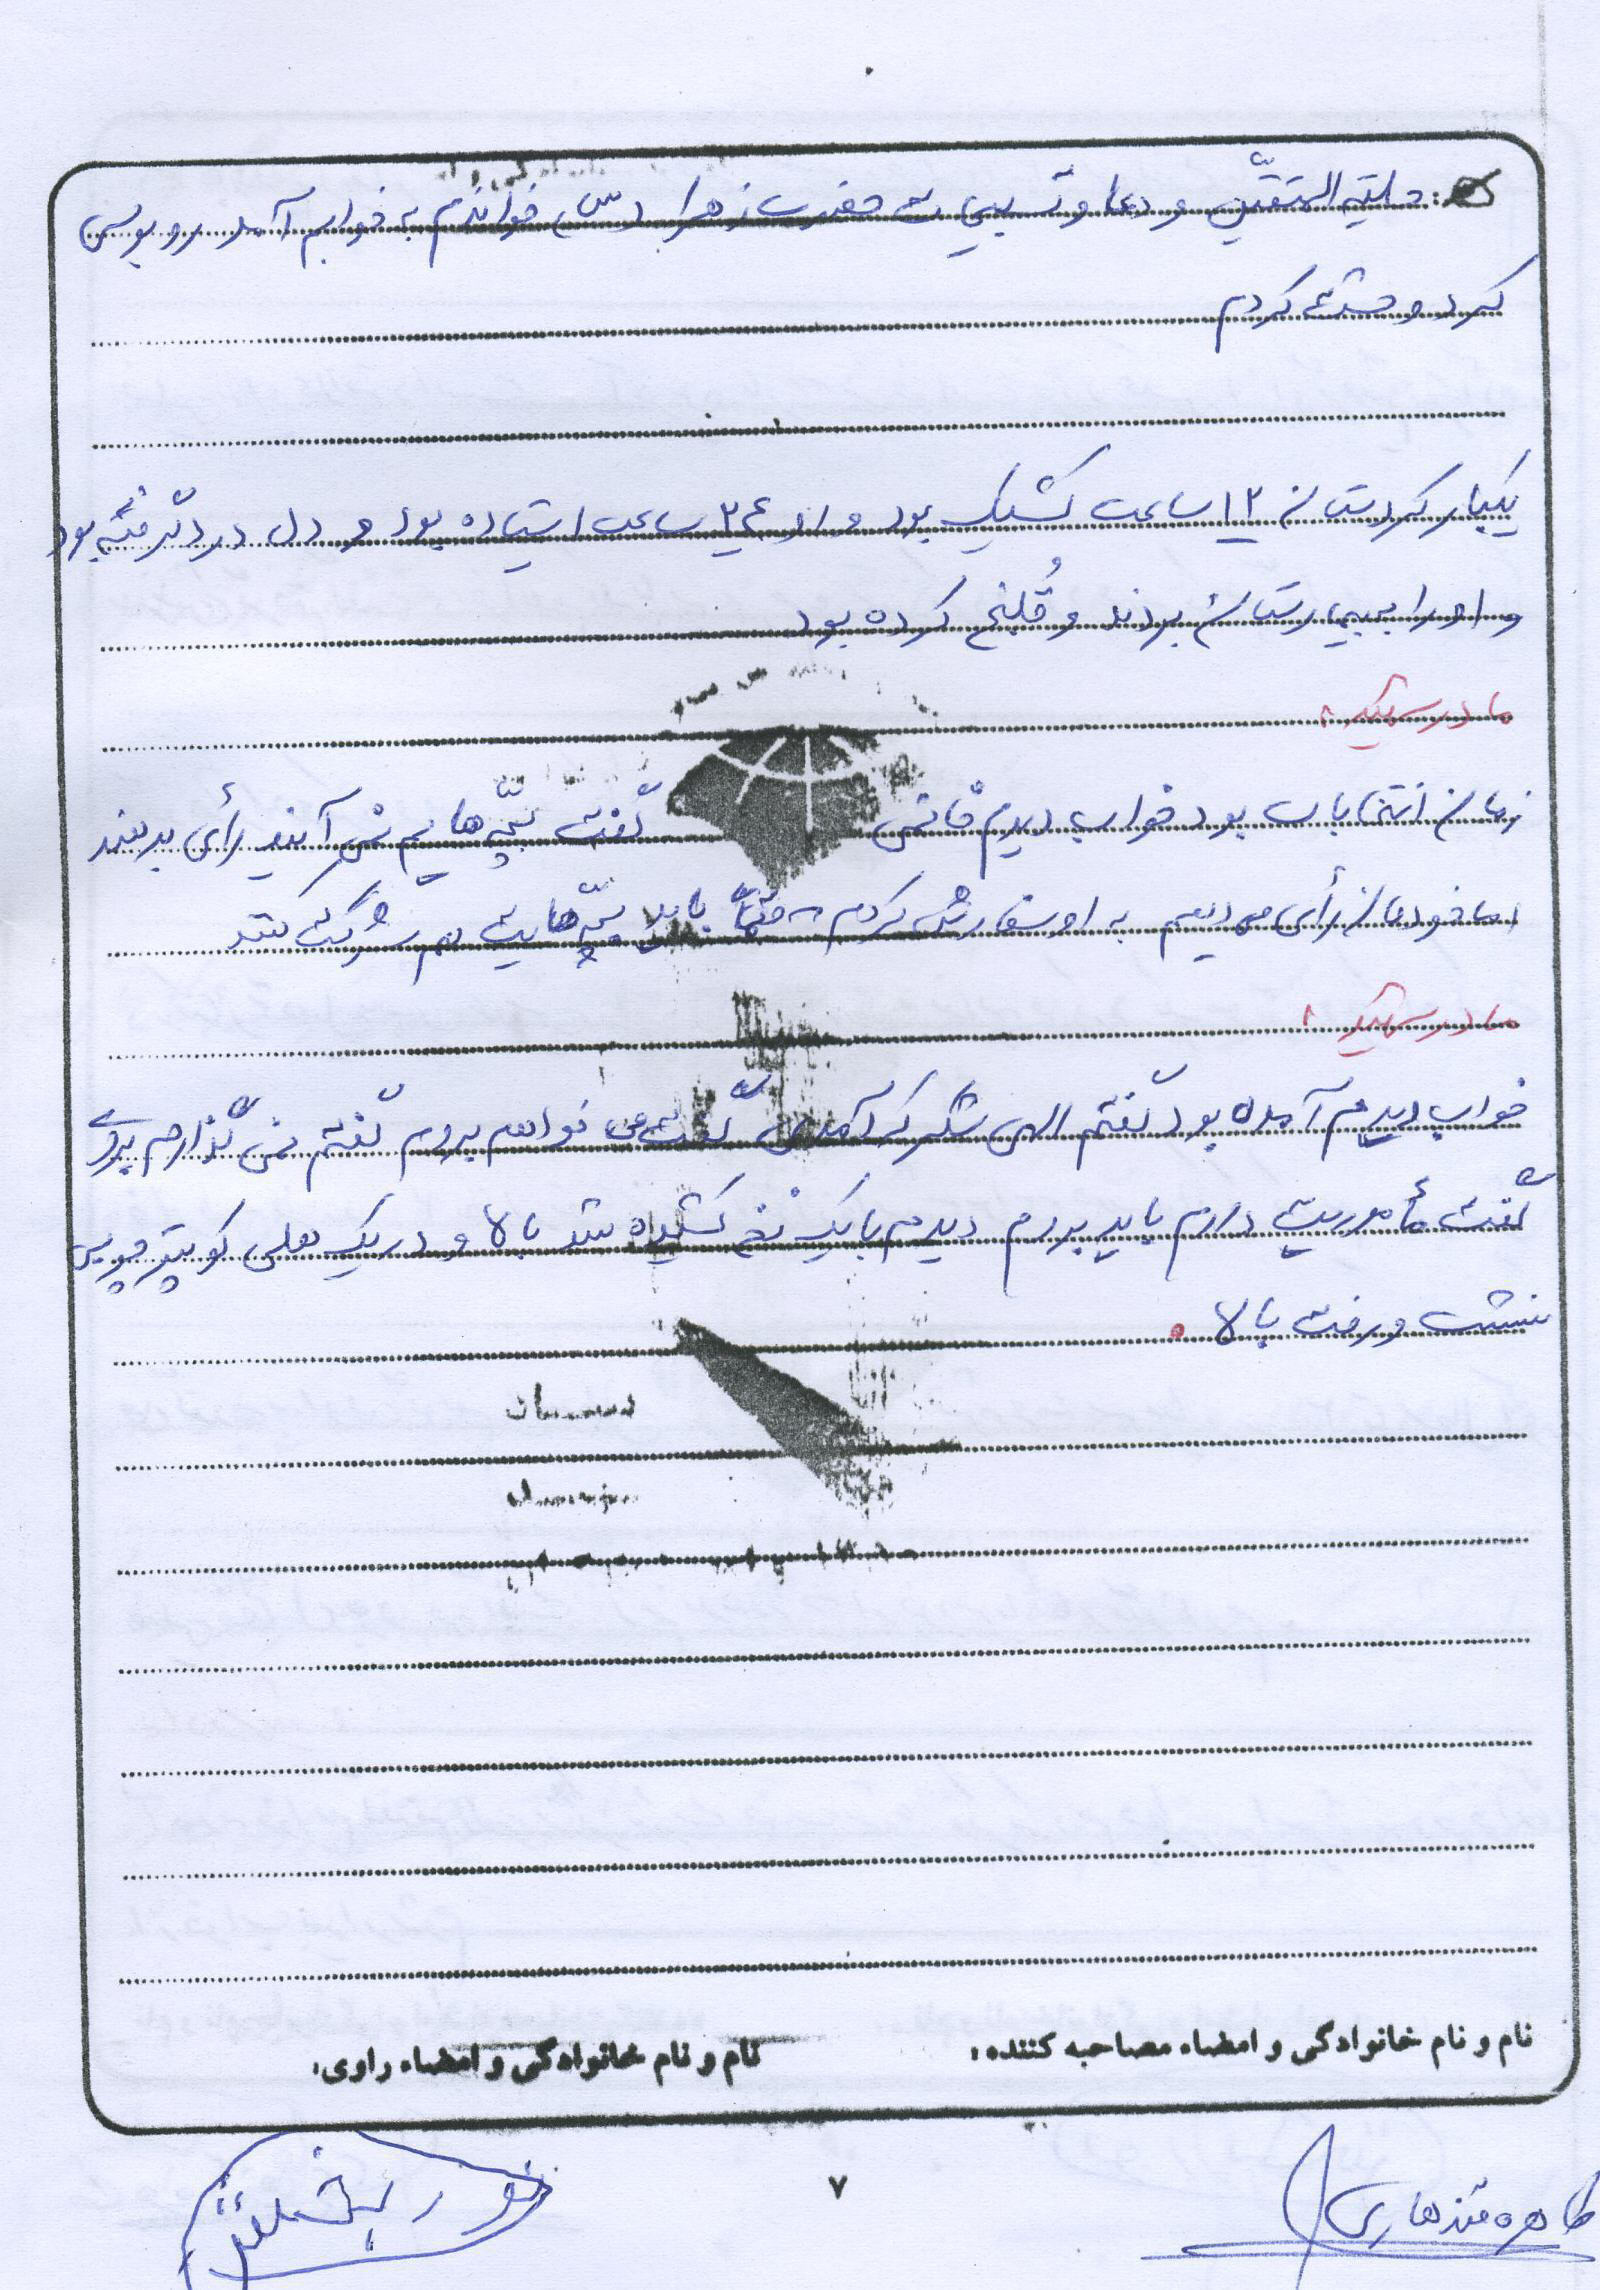 حلیته المتقین و دعا و تسبیحات حضرت زهرا (س) خواندم به خوابم آمد روبوسی
کرد و خستگی کردم
یکبار کردستان ۱۲ ساعت کشیک بود و او ۲۴ ساعت استیاده بود و دل درد گرفته بود
و او را به بیمارستان بردند و قُلنج کرده بود
مادر شهید:
زمان انتخابات بود خواب دیدم خانمی گفت بچّه‌هایم نمی آیند رأی بدهند
اما خودمان رأی می دهیم به او سفارش کردم حتماً باید بچّه‌هایت هم شرکت کنند
مادر شهید:
خواب دیدم آمده بود گفتم الهی شکر که آمدی گفت می خواهم بروم گفتم نمی گذارم بروی
گفت مأموریت دارم باید بروم دیدم با یک نخ کشیده شد بالا و در یک هلی کوپتر
نشست و رفت بالا.
نام و نام خانوادگی و امضاء مصاحبه کننده:
نام و نام خانوادگی و امضاء راوی:
۷
طاهره قندهاری